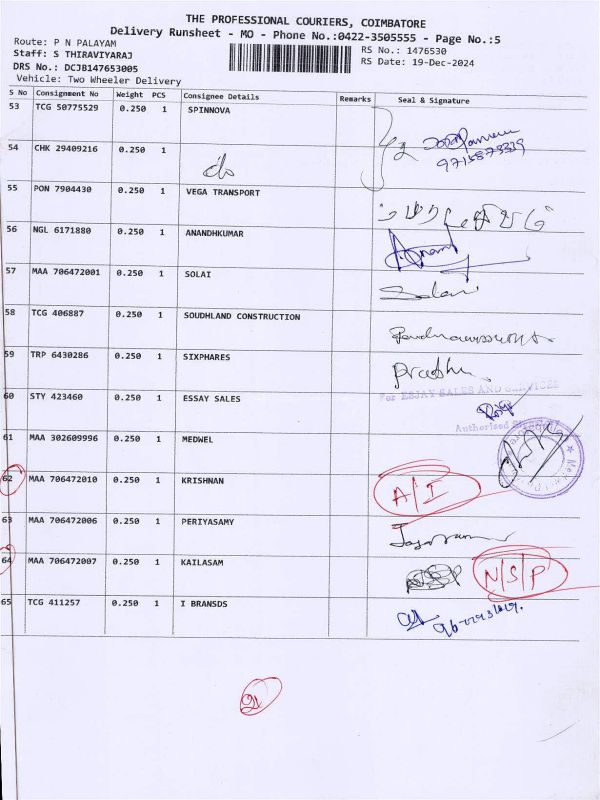 THE PROFESSIONAL COURIERS, COIMBATORE
Delivery Runsheet - MO - Phone No.:0422-3505555 - Page No.:5
Route: P N PALAYAM
RS No.: 1476530
Staff: S THIRAVIYARAJ
RS Date: 19-Dec-2024
DRS No.: DCJB147653005
Vehicle: Two Wheeler Delivery
S No Consignment No Weight PCS Consignee Details Remarks Seal & Signature
53 TCG 50775529 0.250 1 SPINNOVA
54 CHK 29409216 0.250 1
55 PON 7904430 0.250 1 VEGA TRANSPORT
56 NGL 6171880 0.250 1 ANANDHKUMAR Anand
57 MAA 706472001 0.250 1 SOLAI
58 TCG 406887 0.250 1 SOUDHLAND CONSTRUCTION
59 TRP 6430286 0.250 1 SIXPHARES
60 STY 423460 0.250 1 ESSAY SALES For ESJAY SALES AND SERVICES
61 MAA 302609996 0.250 1 MEDWEL
62 MAA 706472010 0.250 1 KRISHNAN A/I
63 MAA 706472006 0.250 1 PERIYASAMY
64 MAA 706472007 0.250 1 KAILASAM N/S/P
65 TCG 411257 0.250 1 I BRANSDS